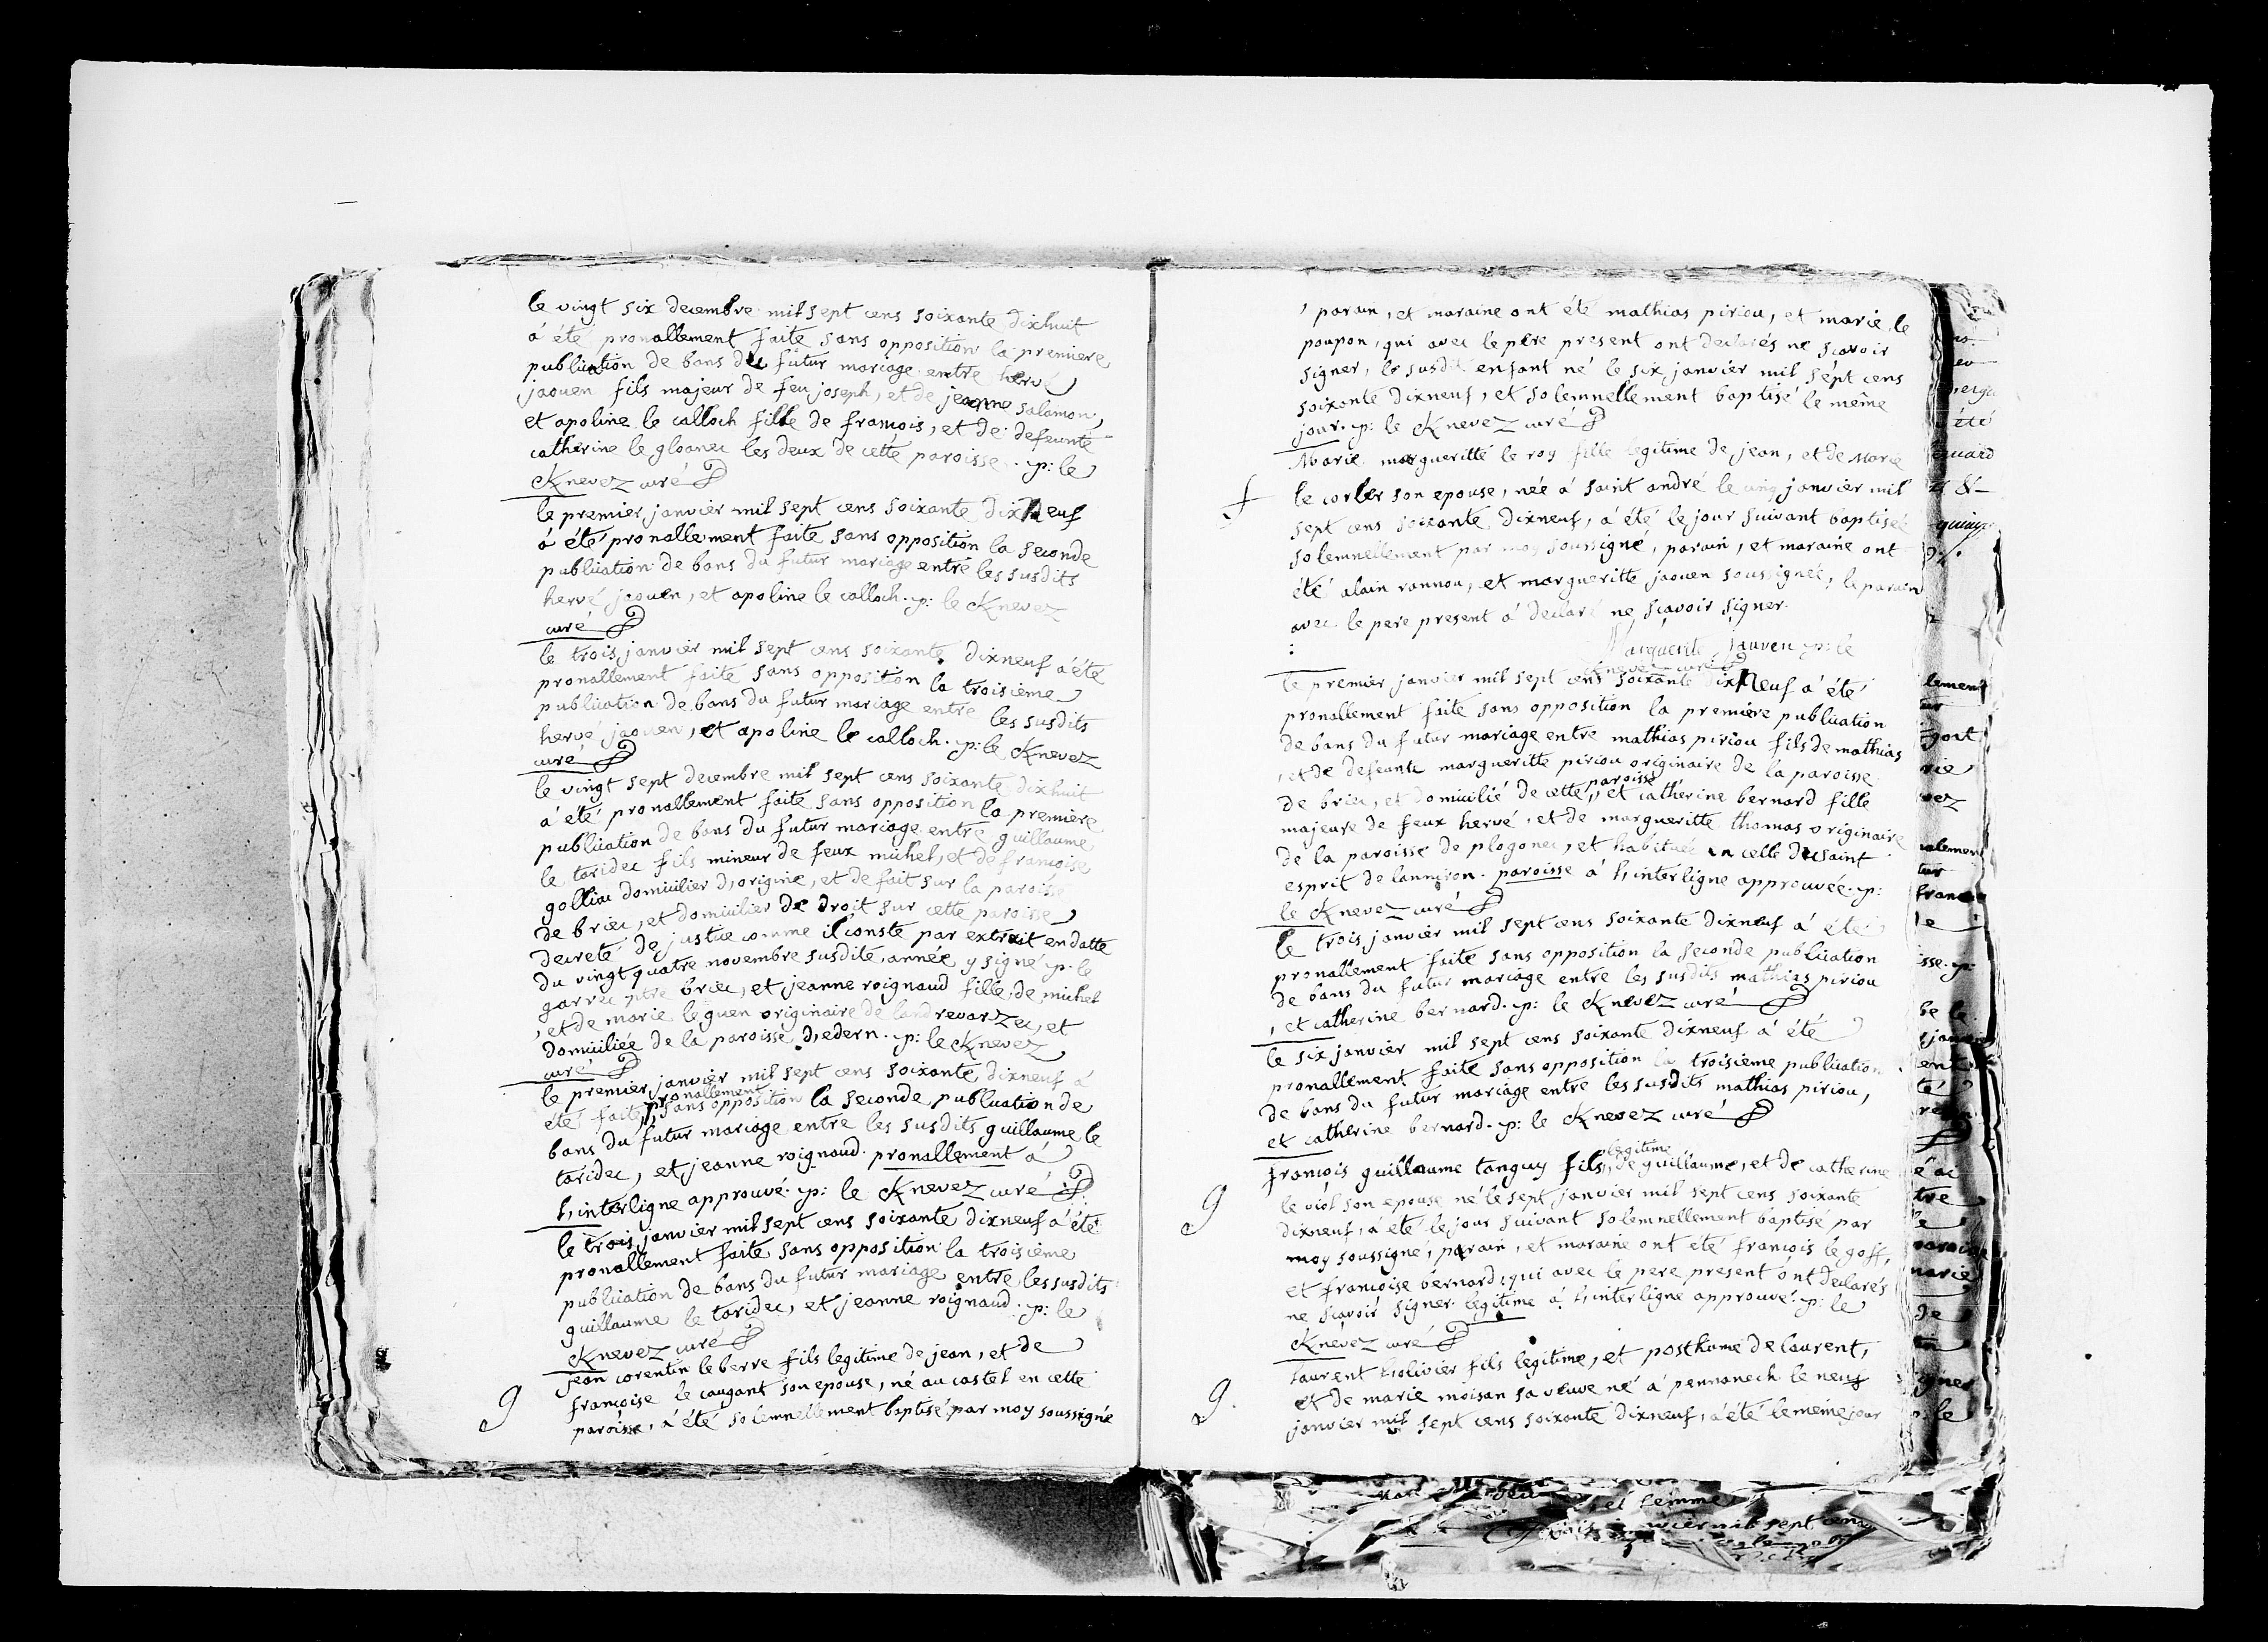 le vingt six decembre mil sept cens soixante dixhuit
a été pronallement faite sans opposition la premiere
publication de bans du futur mariage entre hervé
jaouen fils majeur de feu joseph, et de jeanne salamon,
et apoline le calloch fille de francois, et de defeunte
catherine le gloanec les deux de cette paroisse. p: le
Knevez curé
le premier janvier mil sept cens soixante dixNeuf
a été pronallement faite sans opposition la seconde
publication de bans du futur mariage entre les susdits
hervé jaouen, et apoline le calloch. p: le Knevez
curé
le trois janvier mil sept cens soixante dixneuf a été
pronallement faite sans opposition la troisieme
publication de bans du futur mariage entre les susdits
hervé jaouen, et apoline le calloch. p: le Knevez
curé
le vingt sept decembre mil sept cens soixante dixhuit
a été pronallement faite sans opposition la premiere
publication de bans du futur mariage entre guillaume
le taridec fils mineur de feux michel, et de françoise
golliou domicilier d'origine, et de fait sur la paroisse
de briec, et domicilier de droit sur cette paroisse
decreté de justice comme il conste par extrait en datte
du vingt quatre novembre susdite année y signé p. le
garrec ptre briec, et jeanne roignaud fille de michel
, et de marie le guen originaire de landrevarzec, et
domiciliée de la paroisse d'edern. p: le Knevez
curé
le premier janvier mil sept cens soixante dixneuf a
pronallement
été faite sans opposition la seconde publication de
bans du futur mariage entre les susdits guillaume le
taridec, et jeanne roignaud. pronallement a
l'interligne approuvé. p: le Knevez curé
le trois janvier mil sept cens soixante dixneuf a été
pronallement faite sans opposition la troisieme
publication de bans du futur mariage entre les susdits
guillaume le taridec, et jeanne roignaud. p: le
Knevez curé
9 jean corentin le berre fils legitime de jean, et de
françoise le caugant son epouse, né au castel en cette
paroisse, a été solemnellement baptisé par moy soussigné
, parain, et maraine ont été mathias piriou, et marie le
poupon, qui avec le pere present ont declarés ne scavoir
signer, le susdit enfant né le six janvier mil sept cens
soixante dixneuf, et solemnellement baptisé le même
jour. p: le Knevez curé
f Marie margueritte le roy fille legitime de jean, et de Marie
le corler son epouse, née a saint andré le cinq janvier mil
sept cens soixante dixneuf, a été le jour suivant baptisée
solemnellement par moy soussigné, parain, et maraine ont
été alain rannou, et margueritte jaouen soussignée, le parain
avec le pere present a declaré ne scavoir signer.
Marguerite Jauven p: le
Knevez curé
le premier janvier mil sept cens soixante dixNeuf a été
pronallement faite sans opposition la premiere publication
de bans du futur mariage entre mathias piriou fils de mathias
, et de defeante margueritte piriou originaire de la paroisse
paroisse
de briec, et domicilié de cette, et catherine bernard fille
majeure de feux hervé, et de margueritte thomas originaire
de la paroisse de plogonec, et habituée en celle du saint
esprit de lanniron. paroisse a l'interligne approuvée. p:
le Knevez curé
le trois janvier mil sept cens soixante dixneuf a été
pronallement faite sans opposition la seconde publication
de bans du futur mariage entre les susdits mathias piriou
, et catherine bernard. p: le Knevez curé
le six janvier mil sept cens soixante dixneuf a été
pronallement faite sans opposition la troisième publication
de bans du futur mariage entre les susdits mathias piriou,
et catherine bernard. p: le Knevez curé
legitime
9 françois guillaume tanguy fils de guillaume, et de catherine
le viol son epouse né le sept janvier mil sept cens soixante
dixneuf, a été le jour suivant solemnellement baptisé par
moy soussigné, parain, et maraine ont été françois le goff,
et françoise bernard, qui avec le pere present ont declarés
ne scavoir signer. legitime a l'interligne approuvé. p: le
Knevez curé
9. laurent l'olivier fils legitime, et posthume de laurent,
et de marie moisan sa veuve né a pennanech le neuf
janvier mil sept cens soixante dixneuf, a été le meme jour